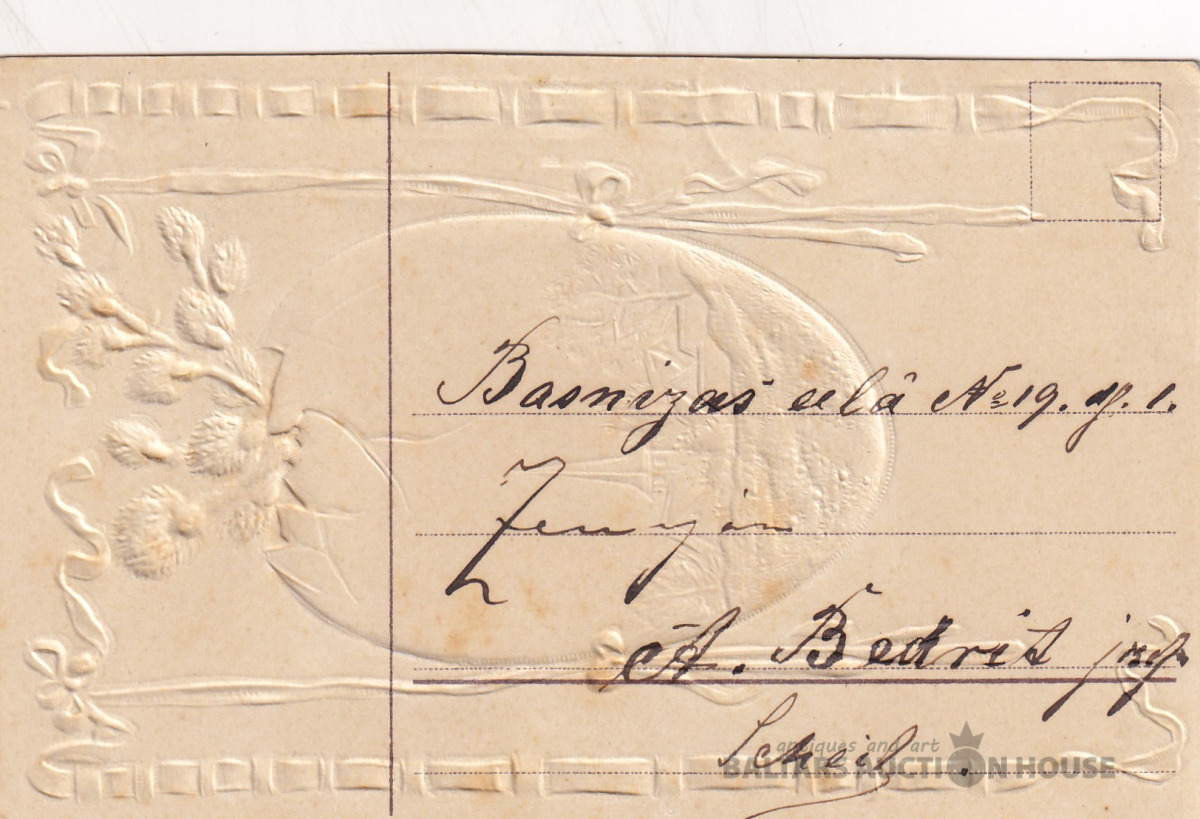 Basnizas eelâ № 19. dz. 1.
Jenyán
A. Bedrit jzgk
Scheib.
antiques and art
BALTARS AUCTION HOUSE